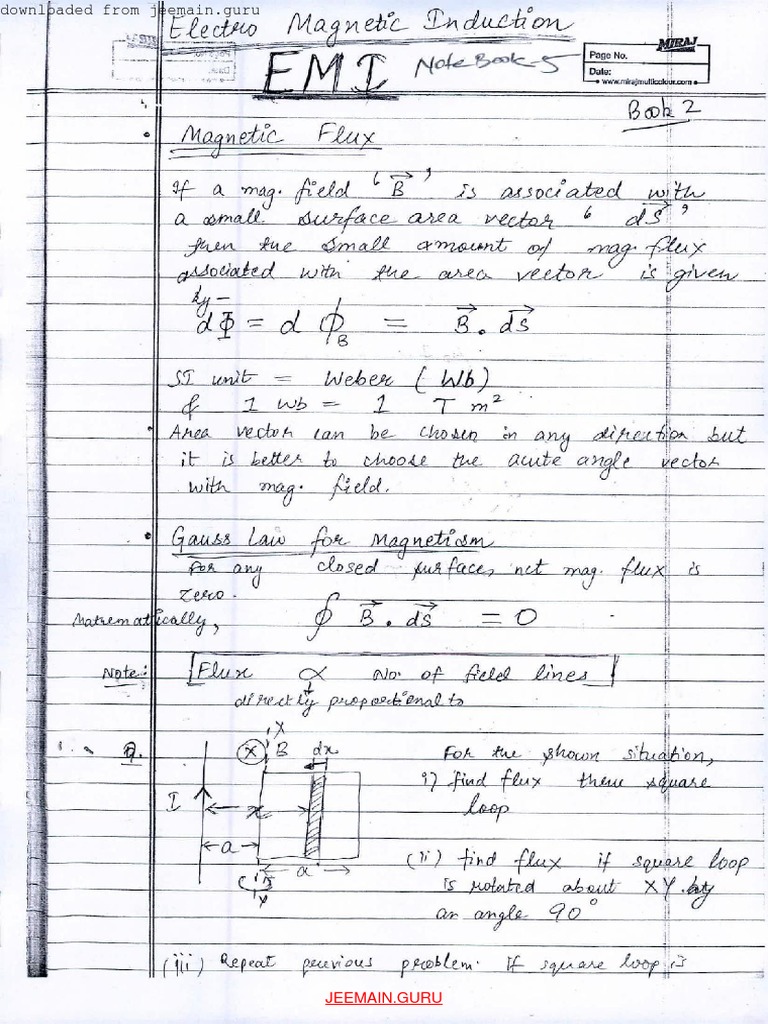 downloaded from jeemain.guru
Electro Magnetic Induction
EMI NoteBook-5
MIRAJ
Page No.
Date:
www.mirajmulticolour.com
Book 2
Magnetic Flux
If a mag. field ‘B⃗’ is associated with
a small surface area vector ‘ds⃗’
then the small amount of mag. flux
associated with the area vector is given
by –
dΦ = dϕ_B = B⃗ . ds⃗
SI unit = Weber (Wb)
& 1 wb = 1 T m²
Area vector can be chosen in any direction but
it is better to choose the acute angle vector
with mag. field.
Gauss Law for Magnetism
For any closed surface, net mag. flux is
zero.
Mathematically, ∮ B⃗ . ds⃗ = 0
Note: Flux ∝ No. of field lines
directly proportional to
1. Q. For the shown situation,
i) find flux threw square
loop
(ii) find flux if square loop
is rotated about XY by
an angle 90°
X
B
dx
I
x
a
a
Y
(iii) Repeat previous problem. If square loop is
JEEMAIN.GURU